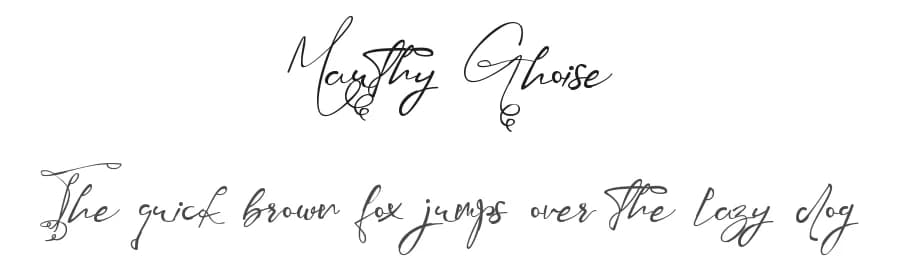 Manthy Ghoise
The quick brown fox jumps over the lazy dog